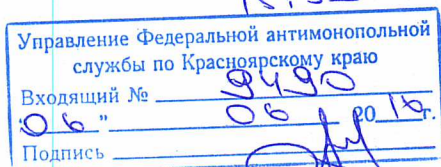 Управление Федеральной антимонопольной
службы по Красноярскому краю
Входящий № 9490
"06" 06 2016г.
Подпись